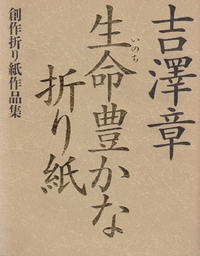 吉澤章
生命豊かな
いのち
折り紙
創作折り紙作品集